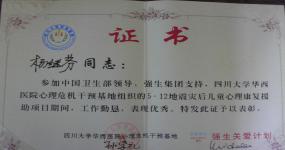 证书
杨继芬 同志：
参加中国卫生部领导、强生集团支持，四川大学华西
医院心理危机干预基地组织的5·12地震灾后儿童心理康复援
助项目期间，工作勤恳，表现优秀。特发此证予以表彰。
四川大学华西医院心理危机干预基地
强生关爱计划